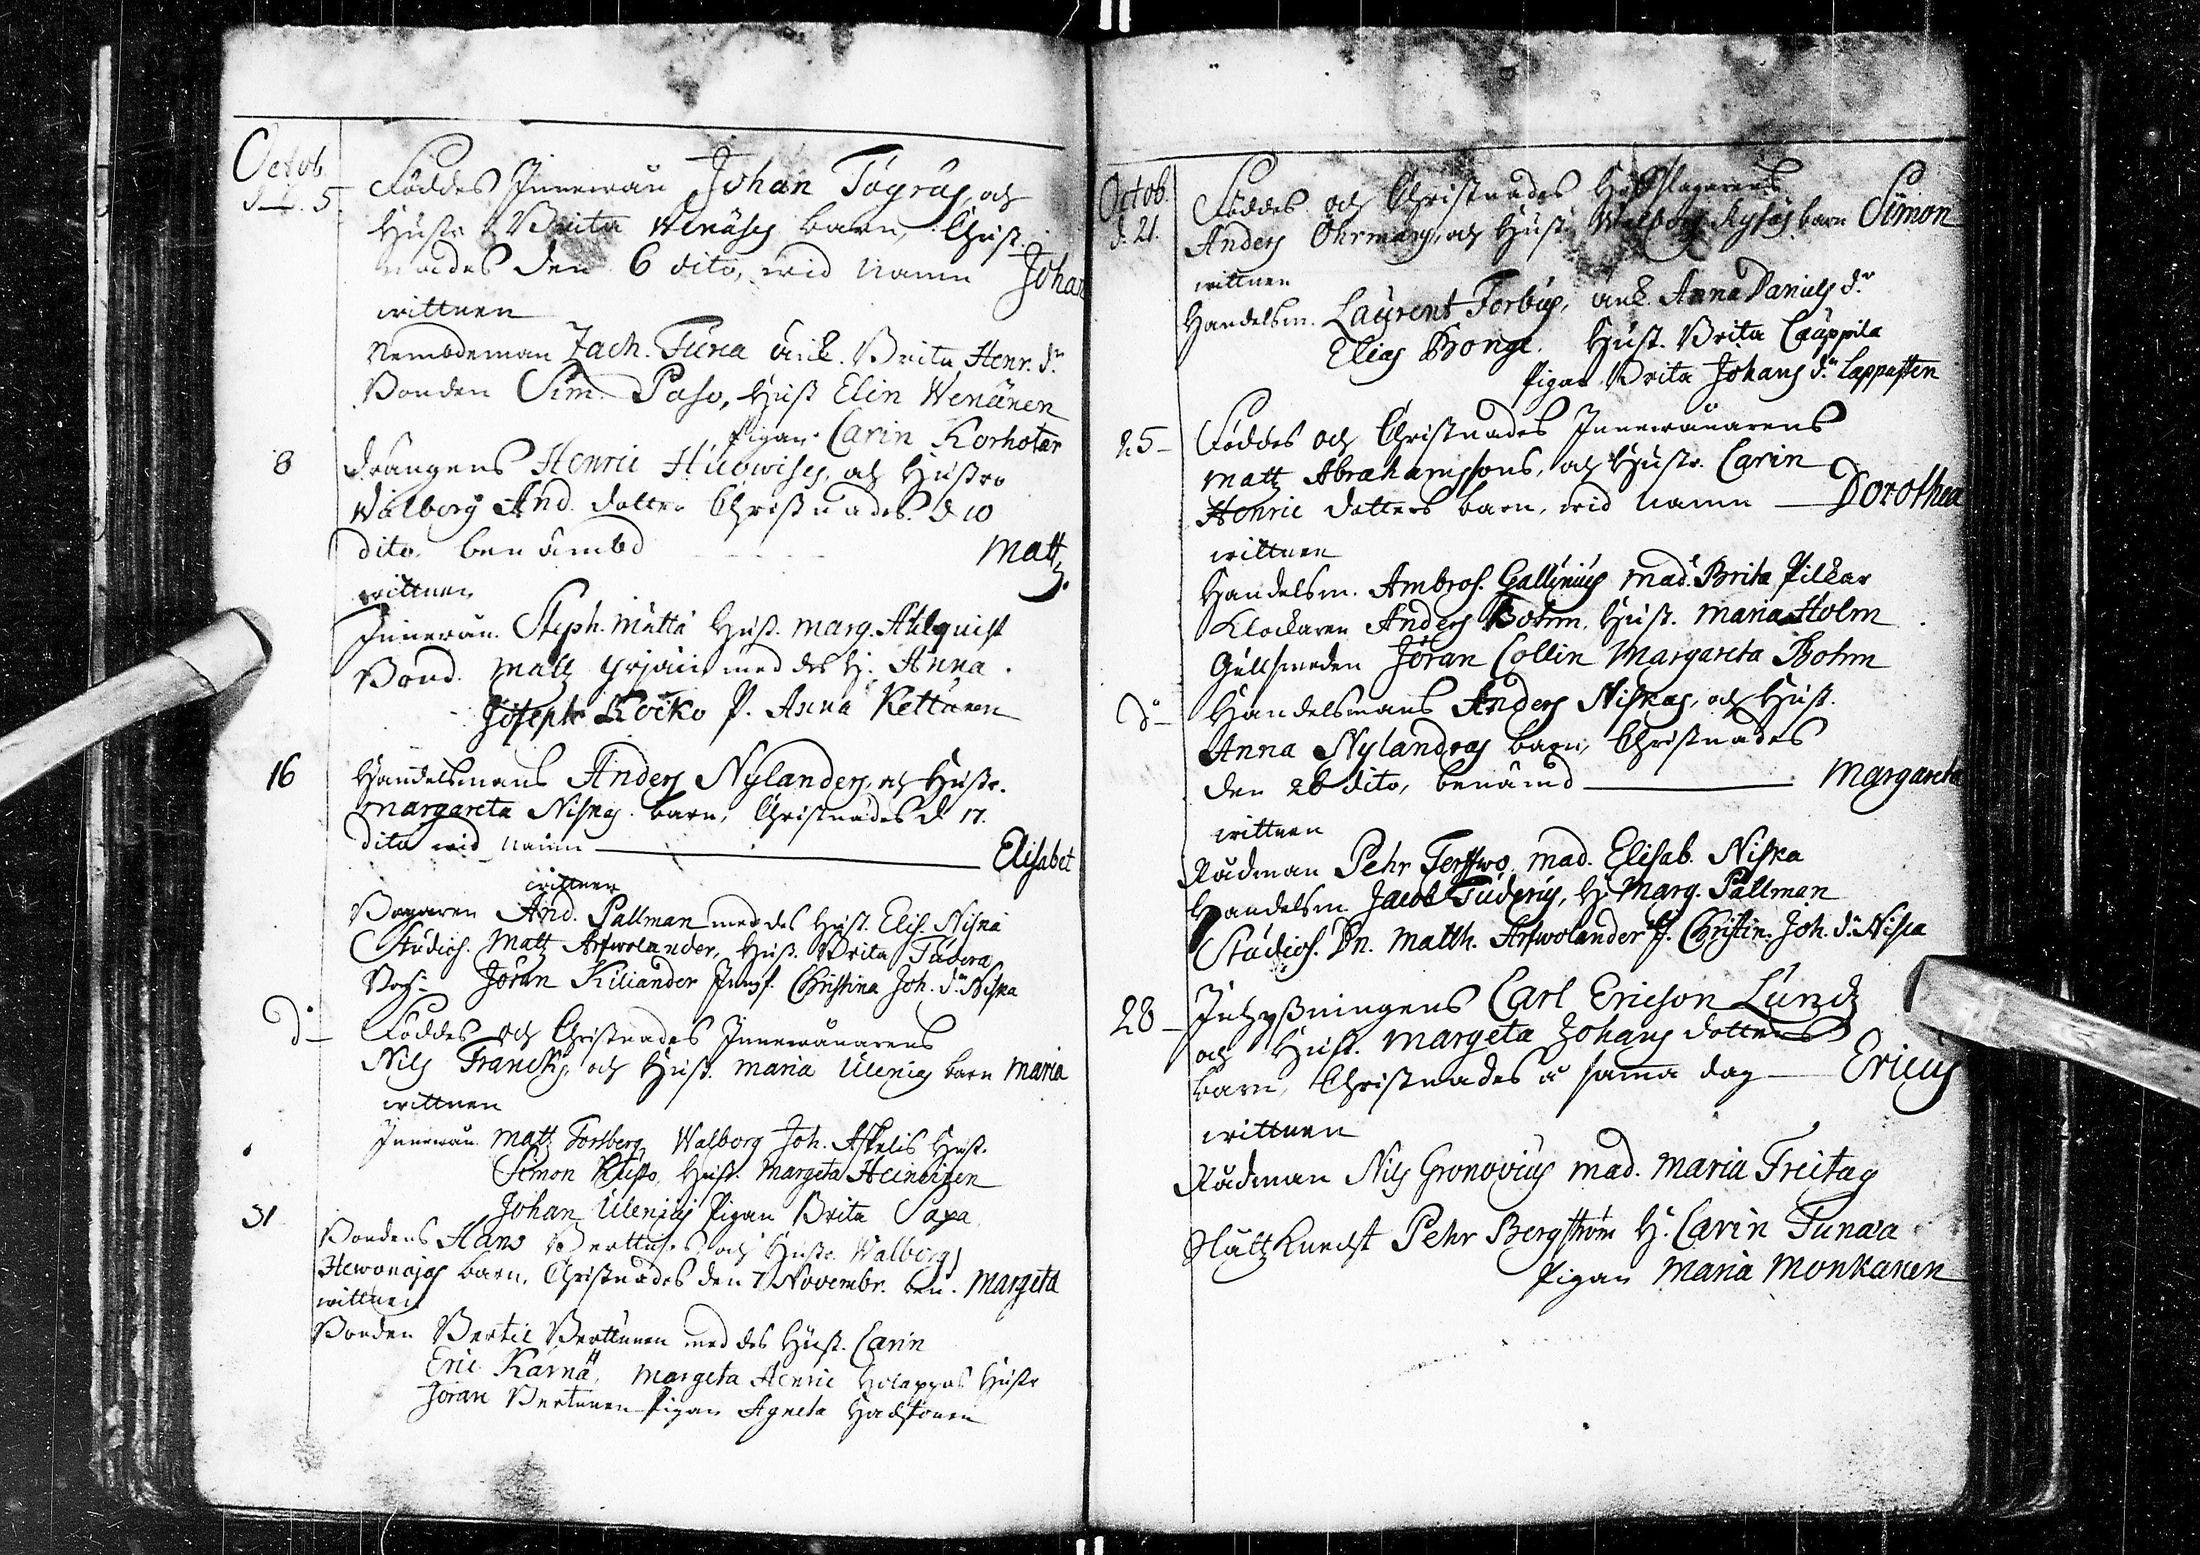 Octob.
d. 5. Föddes Innewån Johan Togrus, och
Hustr. Brita Wenäses barn, Christ-
nades den 6 dito, wid namn Johan
wittnen
Nembdeman Zach. Turca änk. Brita Henr. dr
Bonden Sim. Paso, Hust Elin Wenänen
Pigan Carin Korhotar
8 drängens Henric Huowises, och Hustro
Walborg And. dotters Christnades d 10
dito benämbd Matz.
wittnen
Innewån. Steph. Mätta Hust. Marg. Ahlquist
Bond. Matz Yrjäin med des H. Anna
Joseph Koiko P. Anna Kettunen
16 Handelsmans Anders Nylanders, och Hustr.
Margareta Niskas barn, Christnades d 17.
dito wid namn Elisabet
wittnen
Borgaren And. Pallman med des Hust. Elis. Niska
Studios. Matz Arfwolander, Hust. Brita Tudera
Joran Kiliander Jungf. Christina Joh. dr Niska
do Föddes och Christnades Innewånarens
Nils Francks, och Hust. Maria Ulenias barn Maria
wittnen
Innewån. Matz Forsberg, Walborg Joh. Askelis Hust.
Simon Hust. Margeta Heinoinen
Johan Ulenius Pigan Brita Saxa
31 Bondens Hans Berttuses och Hustr. Walborg
Hewonojas barn, Christnades den 7 Novembr. ben. Margeta
wittnen
Bonden Bertil Berttunen med des Hust. Carin
Eric Kärnä, Margeta Henric Holappas Hustr
Joran Bertunen Pigan Agneta
Octob.
d. 21. Föddes och Christnades Hofslagarens
Anders Öhrmans, och Hust. Walborg barn Simon
wittnen
Handelsm. Laurent Forbus, änk. Anna Daniels dr
Elias Bonge. Hust. Brita Cauppila
Pigan Brita Johans dr Lappasten
25 Föddes och Christnades Innewånarens
Matz Abrahamssons, och Hustr. Carin
Henric dotters barn, wid namn Dorothea
wittnen
Handelsm. Ambros. Gallenius Mad. Brita Pilkar
Klockaren Anders Bohm, Hust. Maria Holm
Gullsmeden Joran Collin Margareta Bohm
do Handelsmans Anders Niskas, och Hust.
Anna Nylandras barn, Christnades
den 26 dito, benämd Margareta
wittnen
Rådman Pehr Mad. Elisab. Niska
Handelsm. Jacob Tuderus, H. Marg. Pallman
Studios. Dn. Matth. Arfwolander J. Christin. Joh. dr Niska
28 Inhysningens Carl Ericson Lundz
och Hust. Margeta Johans dotters
barn, Christnades å samma dag Ericus
wittnen
Rådman Nils Gronovius Mad. Maria Freitag
Slåttz Knecht Pehr Bergström H. Carin Tunaa
Pigan Maria Monkanen